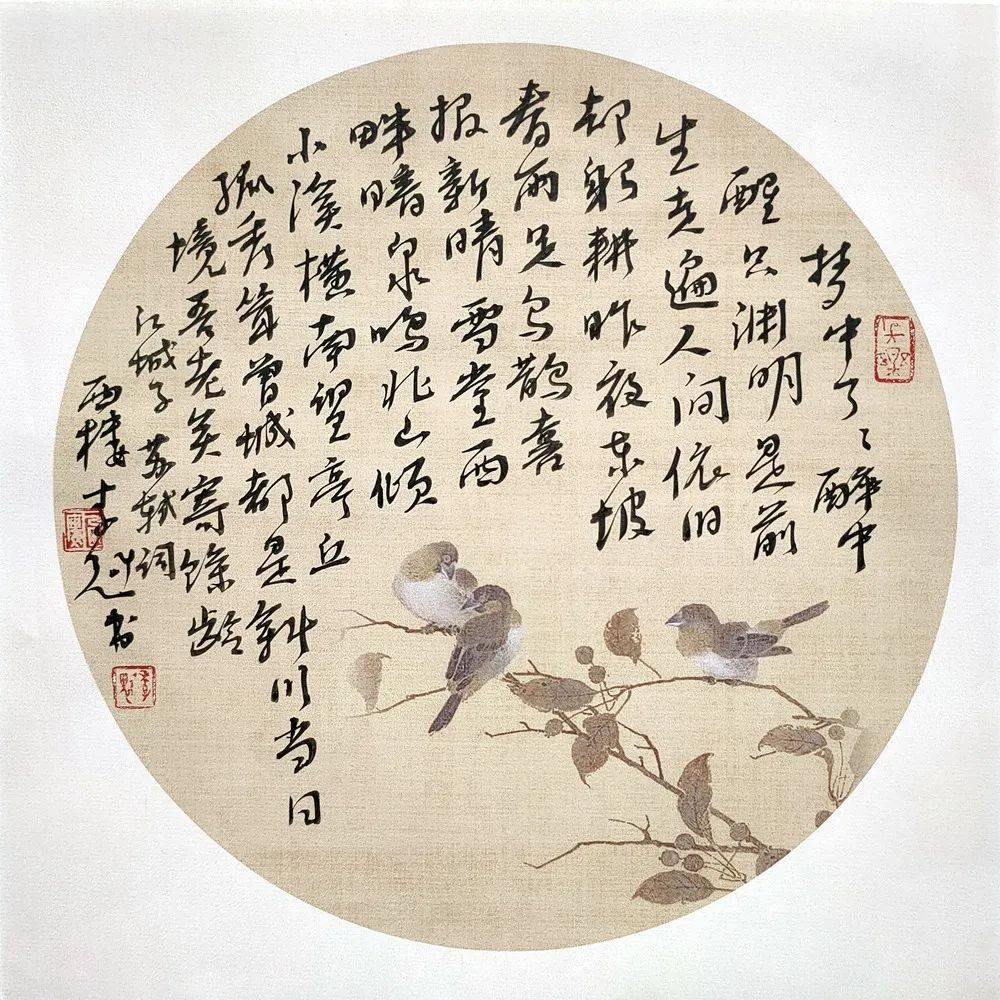 梦中了々醉中
醒只渊明是前
生走遍人间依旧
却躬耕昨夜东坡
春雨足乌鹊喜
报新晴雪堂西
畔暗泉鸣北山倾
小溪横南望亭丘
孤秀耸曾城都是斜川当日
境吾老矣寄馀龄
江城子苏轼词
西楼李书